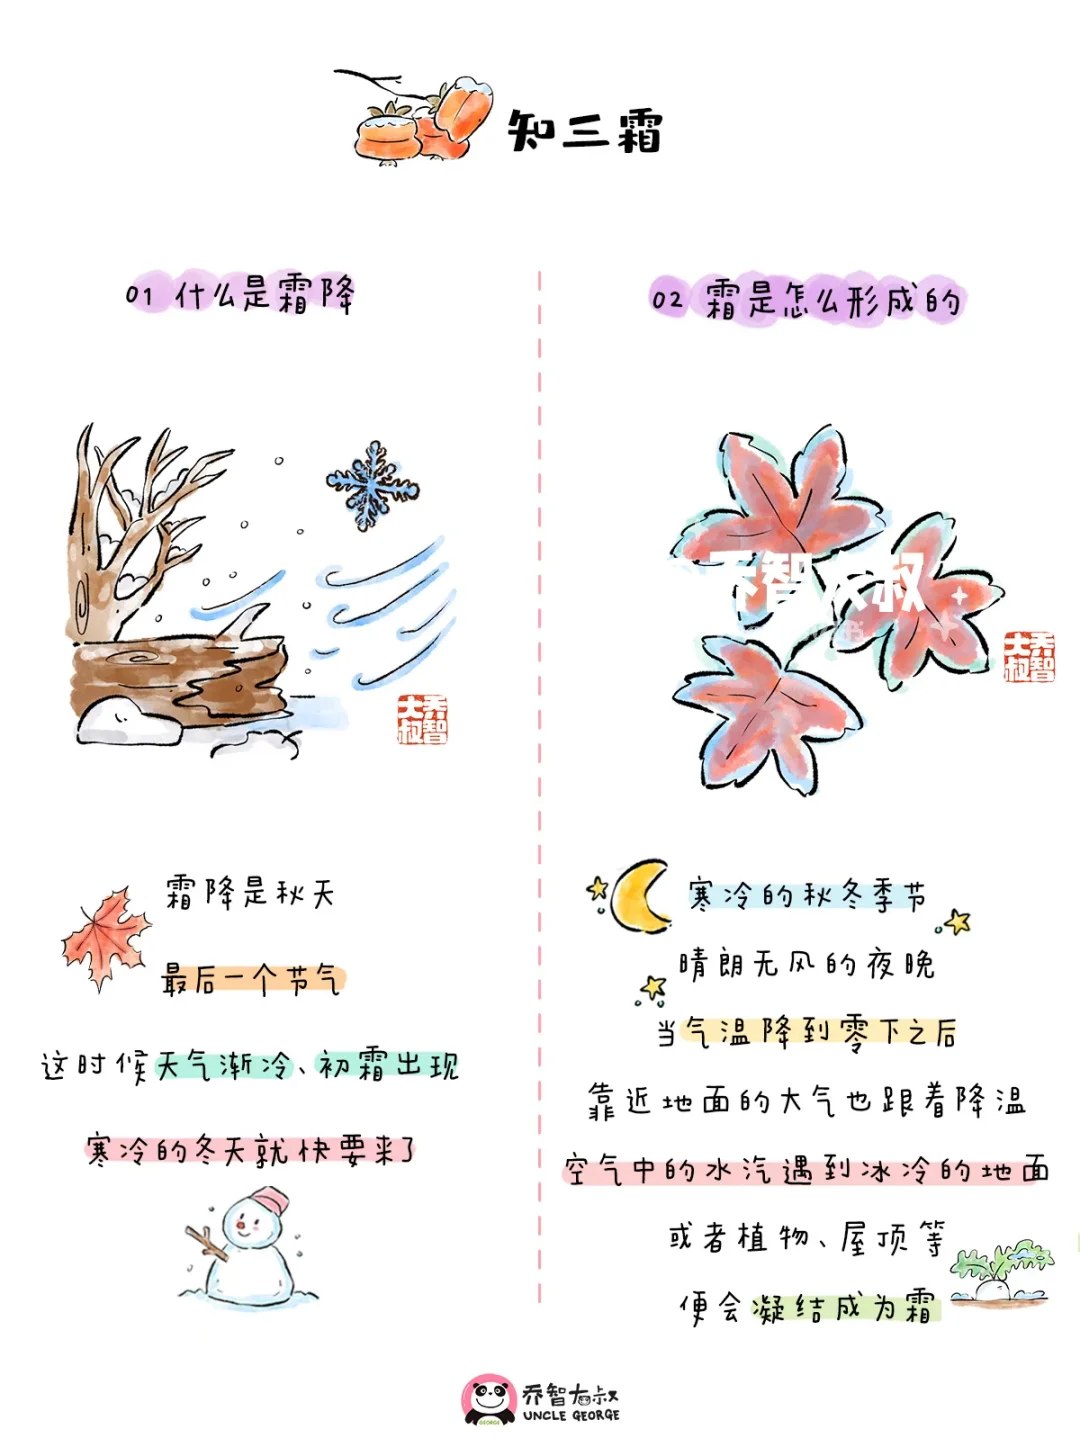 知三霜
01 什么是霜降
霜降是秋天
最后一个节气
这时候天气渐冷、初霜出现
寒冷的冬天就快要来了
乔智大叔
02 霜是怎么形成的
乔智大叔
乔智大叔
寒冷的秋冬季节
晴朗无风的夜晚
当气温降到零下之后
靠近地面的大气也跟着降温
空气中的水汽遇到冰冷的地面
或者植物、屋顶等
便会凝结成为霜
乔智大叔
UNCLE GEORGE
GEORGE